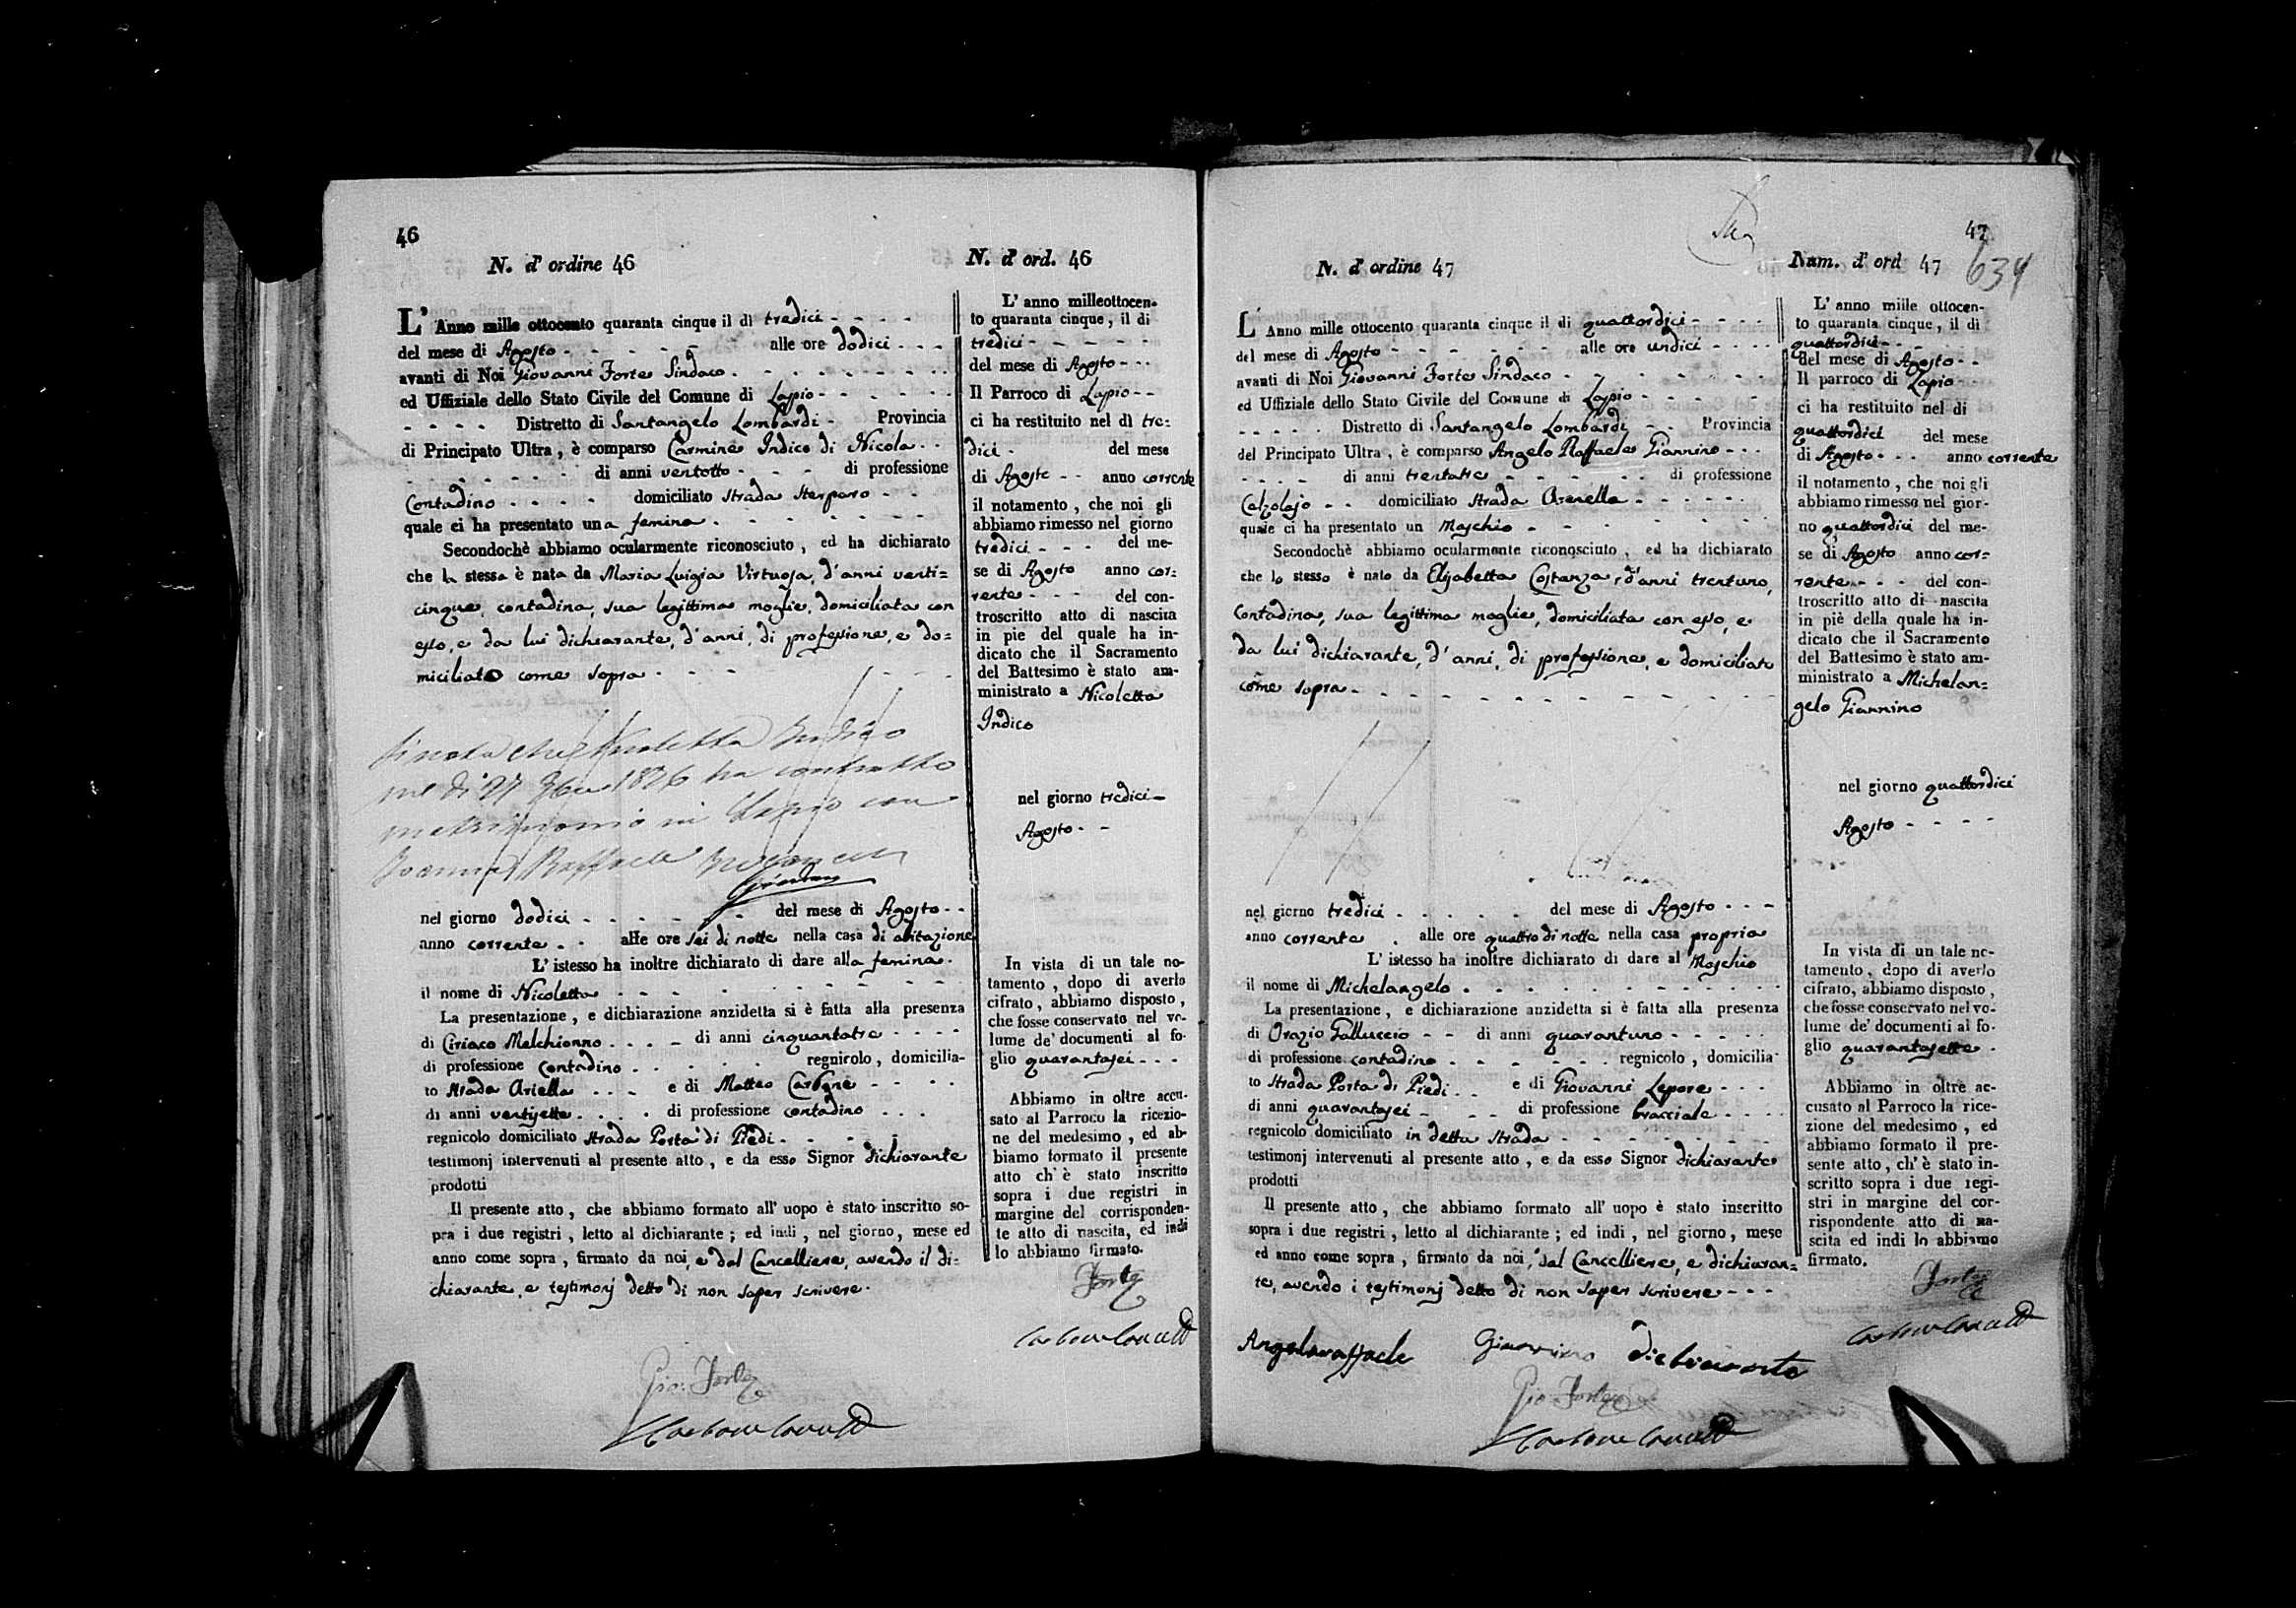 46
N. d' ordine 46
L' Anno mille ottocento quaranta cinque il dì tredici
del mese di Agosto alle ore dodici
avanti di Noi Giovanni Forte Sindaco
ed Uffiziale dello Stato Civile del Comune di Lapio
Distretto di Santangelo Lombardi Provincia
di Principato Ultra, è comparso Carmine Indico di Nicola
di anni ventotto di professione
Contadino domiciliato Strada Sterparo
quale ci ha presentato una femina
Secondochè abbiamo ocularmente riconosciuto, ed ha dichiarato
che la stessa è nata da Maria Luigia Virtuosa, d'anni venti=
cinque, contadina, sua legittima moglie, domiciliata con
esso, e da lui dichiarante, d'anni, di professione, e do=
miciliato come sopra
Si nota che Nicoletta Indico
nel dì 27 1876 ha contratto
matrimonio in Lapio con
Raffaele
nel giorno dodici del mese di Agosto
anno corrente alle ore sei di notte nella casa di abitazione
L' istesso ha inoltre dichiarato di dare alla femina
il nome di Nicoletta
La presentazione, e dichiarazione anzidetta si è fatta alla presenza
di Ciriaco Melchionno di anni cinquantatre
di professione contadino regnicolo, domicilia-
to Strada Ariella e di Matteo Carbone
di anni ventisette di professione contadino
regnicolo domiciliato Strada Porta di Piedi
testimonj intervenuti al presente atto, e da esso Signor dichiarante
prodotti
Il presente atto, che abbiamo formato all' uopo è stato inscritto so-
pra i due registri, letto al dichiarante; ed indi, nel giorno, mese ed
anno come sopra, firmato da noi, e dal Cancelliere, avendo il di=
chiarante, e testimonj detto di non saper scrivere.
Gio: Forte
N. d' ord. 46
L' anno milleottocen-
to quaranta cinque, il di
tredici
del mese di Agosto
Il Parroco di Lapio
ci ha restituito nel dì tre=
dici del mese
di Agosto anno corrente
il notamento, che noi gli
abbiamo rimesso nel giorno
tredici del me-
se di Agosto anno cor=
rente del con-
troscritto atto di nascita
in pie del quale ha in-
dicato che il Sacramento
del Battesimo è stato am-
ministrato a Nicoletta
Indico
nel giorno tredici
Agosto
In vista di un tale no-
tamento, dopo di averlo
cifrato, abbiamo disposto,
che fosse conservato nel vo-
lume de' documenti al fo-
glio quarantasei
Abbiamo in oltre accu-
sato al Parroco la ricezio-
ne del medesimo, ed ab-
biamo formato il presente
atto ch' è stato inscritto
sopra i due registri in
margine del corrisponden-
te atto di nascita, ed indi
lo abbiamo firmato.
Forte
47
634
N. d' ordine 47
L' Anno mille ottocento quaranta cinque il di quattordici
del mese di Agosto alle ore undici
avanti di Noi Giovanni Forte Sindaco
ed Uffiziale dello Stato Civile del Comune di Lapio
Distretto di Santangelo Lombardi Provincia
del Principato Ultra, è comparso Angelo Raffaele Giannino
di anni trentatre di professione
Calzolajo domiciliato Strada Arenella
quale ci ha presentato un Maschio
Secondochè abbiamo ocularmente riconosciuto, ed ha dichiarato
che lo stesso è nato da Elisabetta Costanza, d'anni trentuno,
contadina, sua legittima moglie, domiciliata con esso, e
da lui dichiarante, d'anni, di professione, e domiciliato
come sopra
nel giorno tredici del mese di Agosto
anno corrente alle ore quattro di notte nella casa propria
L' istesso ha inoltre dichiarato di dare al Maschio
il nome di Michelangelo
La presentazione, e dichiarazione anzidetta si è fatta alla presenza
di Orazio Galluccio di anni quarantuno
di professione contadino regnicolo, domicilia-
to Strada Porta di Piedi e di Giovanni Lepore
di anni quarantasei di professione bracciale
regnicolo domiciliato in detta Strada
testimonj intervenuti al presente atto, e da esso Signor dichiarante
prodotti
Il presente atto, che abbiamo formato all' uopo è stato inscritto
sopra i due registri, letto al dichiarante; ed indi, nel giorno, mese
ed anno come sopra, firmato da noi, dal Cancelliere, e dichiaran=
te, avendo i testimonj detto di non saper scrivere
Angeloraffaele Giannino dichiarante
Gio: Forte
Num. d' ord 47
L' anno mille ottocen-
to quaranta cinque, il di
quattordici
del mese di Agosto
Il parroco di Lapio
ci ha restituito nel di
quattordici del mese
di Agosto anno corrente
il notamento, che noi gli
abbiamo rimesso nel gior-
no quattordici del me-
se di Agosto anno cor=
rente del con-
troscritto atto di nascita
in piè della quale ha in-
dicato che il Sacramento
del Battesimo è stato am-
ministrato a Michelan=
gelo Giannino
nel giorno quattordici
Agosto
In vista di un tale no-
tamento, dopo di averlo
cifrato, abbiamo disposto,
che fosse conservato nel vo-
lume de' documenti al fo-
glio quarantasette
Abbiamo in oltre ac-
cusato al Parroco la rice-
zione del medesimo, ed
abbiamo formato il pre-
sente atto, ch' è stato in-
scritto sopra i due regi-
stri in margine del cor-
rispondente atto di na-
scita ed indi lo abbiamo
firmato.
Forte